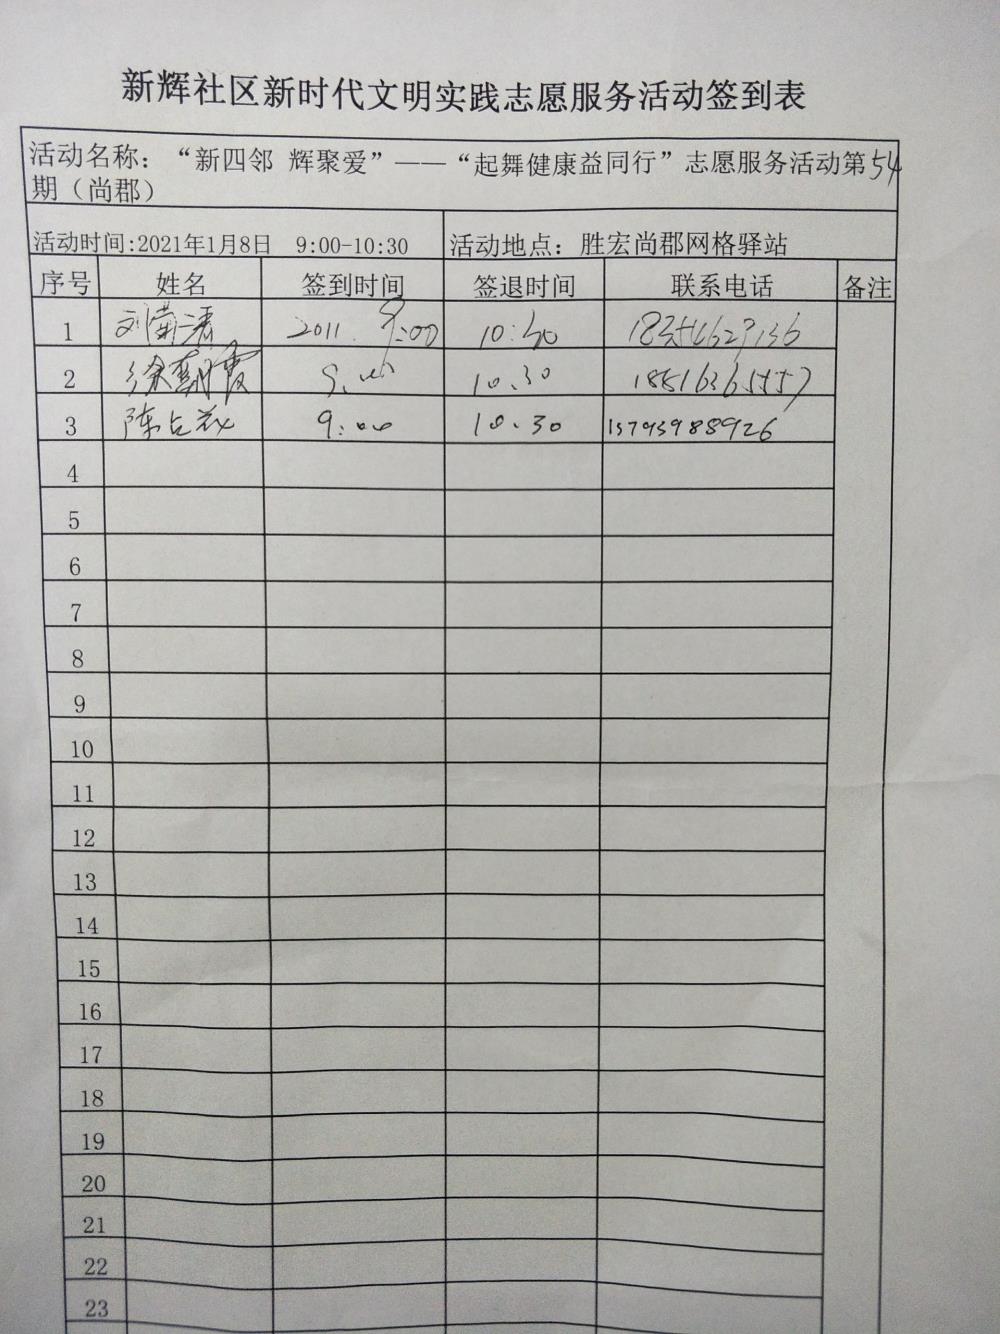 新辉社区新时代文明实践志愿服务活动签到表
活动名称：“新四邻 辉聚爱”——“起舞健康益同行”志愿服务活动第54
期（尚郡）
活动时间:2021年1月8日 9:00-10:30 活动地点：胜宏尚郡网格驿站
序号 姓名 签到时间 签退时间 联系电话 备注
1 2011. 9:00 10:30
2 徐朝霞 9.00 10.30
3 陈 9:00 10.30 13793988926
4
5
6
7
8
9
10
11
12
13
14
15
16
17
18
19
20
21
22
23